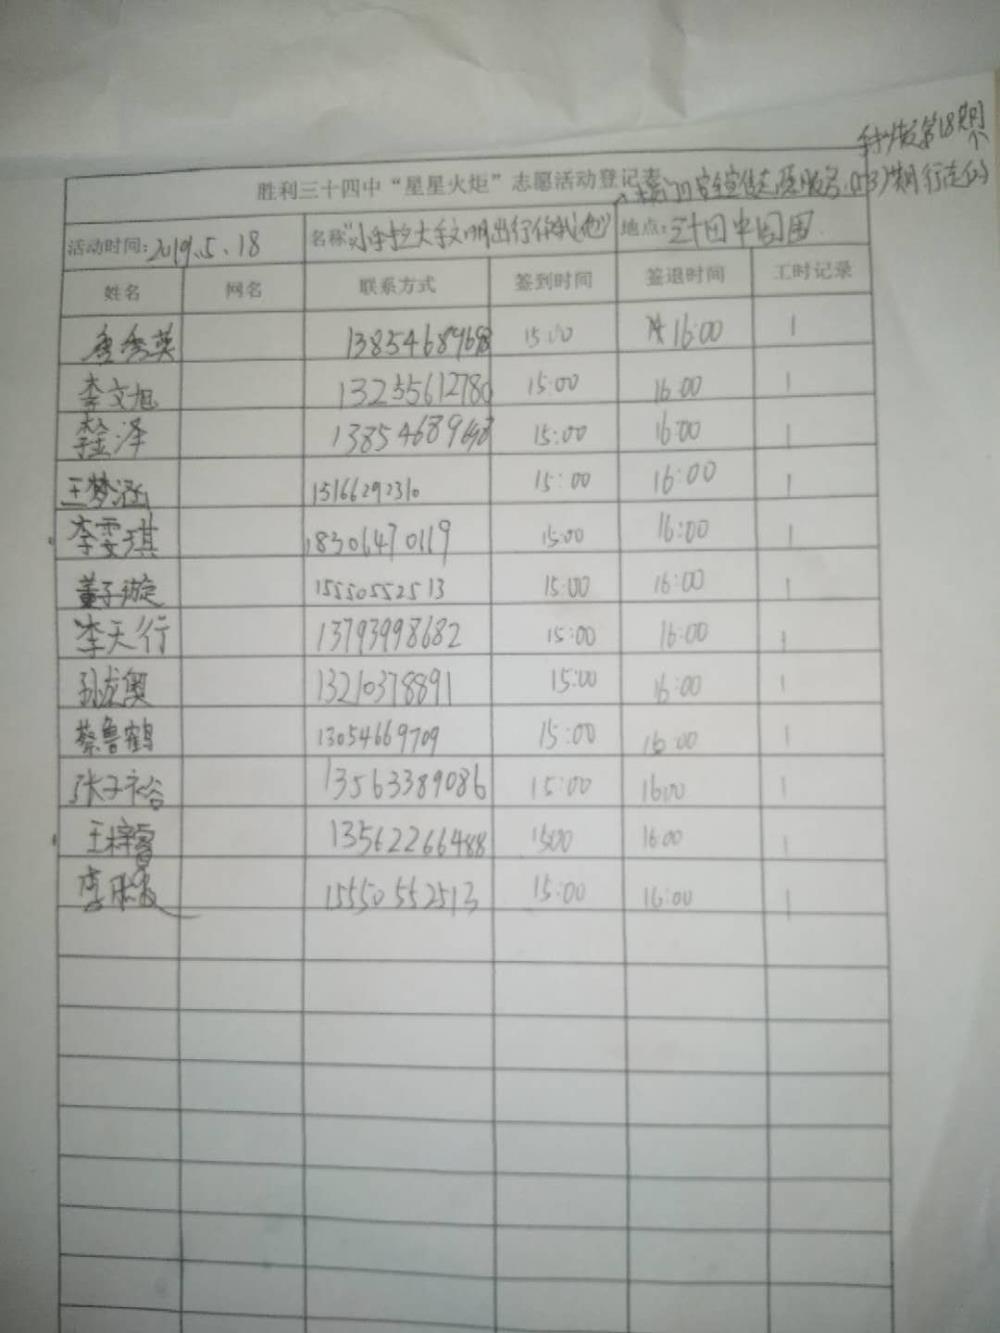 手抄报第18期
胜利三十四中“星星火炬”志愿活动登记表
活动时间：2019.5.18 名称“小手拉大手文明出行你我他” 地点：三十四中周围
姓名 网名 联系方式 签到时间 签退时间 工时记录
李秀英 13854689698 15:00 16:00 1
李文旭 13255612780 15:00 16:00 1
13854689698 15:00 16:00 1
王梦涵 15166292310 15:00 16:00 1
李雯琪 18306470119 15:00 16:00 1
董子璇 15550552513 15:00 16:00 1
李天行 13793998682 15:00 16:00 1
孙龙奥 13210378891 15:00 16:00 1
蔡鲁鹤 13054669709 15:00 16:00 1
张子裕 13563389086 15:00 16:00 1
王梓睿 13562266488 15:00 16:00 1
李 15550552513 15:00 16:00 1